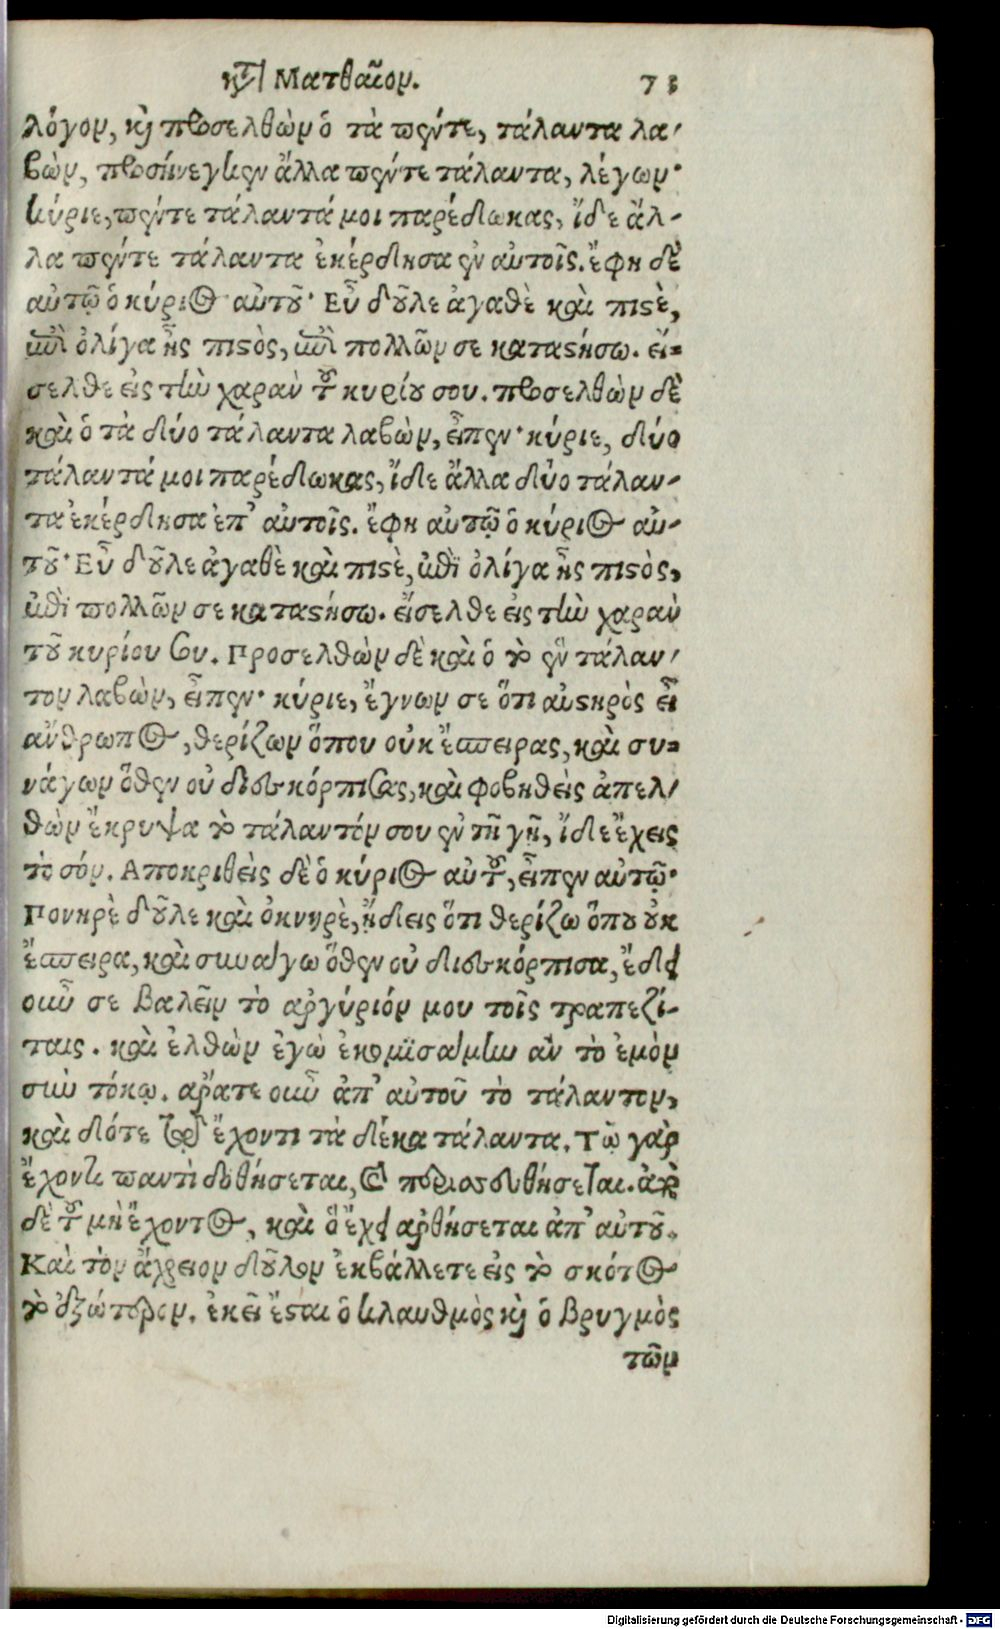 κτ Ματθαῖον. 73
λόγον, καὶ προσελθὼν ὁ τὰ πέντε, τάλαντα λα-
βὼν, προσήνεγκεν ἄλλα πέντε τάλαντα, λέγων·
κύριε, πέντε τάλαντά μοι παρέδωκας, ἴδε ἄλ-
λα πέντε τάλαντα ἐκέρδησα ἐν αὐτοῖς. ἔφη δὲ
αὐτῷ ὁ κύριος αὐτοῦ· Εὖ δοῦλε ἀγαθὲ καὶ πιστὲ,
ἐπὶ ὀλίγα ἦς πιστὸς, ἐπὶ πολλῶν σε καταστήσω. εἴ-
σελθε εἰς τὴν χαρὰν τοῦ κυρίου σου. προσελθὼν δὲ
καὶ ὁ τὰ δύο τάλαντα λαβὼν, εἶπεν· κύριε, δύο
τάλαντά μοι παρέδωκας, ἴδε ἄλλα δύο τάλαν-
τα ἐκέρδησα ἐπ' αὐτοῖς. ἔφη αὐτῷ ὁ κύριος αὐ-
τοῦ· Εὖ δοῦλε ἀγαθὲ καὶ πιστὲ, ἐπὶ ὀλίγα ἦς πιστὸς,
ἐπὶ πολλῶν σε καταστήσω. εἴσελθε εἰς τὴν χαρὰν
τοῦ κυρίου σου. Προσελθὼν δὲ καὶ ὁ τὸ ἓν τάλαν-
τον λαβὼν, εἶπεν· κύριε, ἔγνων σε ὅτι αὐστηρὸς εἶ
ἄνθρωπος, θερίζων ὅπου οὐκ ἔσπειρας, καὶ συ-
νάγων ὅθεν οὐ διεσκόρπισας, καὶ φοβηθεὶς ἀπελ-
θὼν ἔκρυψα τὸ τάλαντόν σου ἐν τῇ γῇ, ἴδε ἔχεις
τὸ σόν. Αποκριθεὶς δὲ ὁ κύριος αὐτοῦ, εἶπεν αὐτῷ·
Πονηρὲ δοῦλε καὶ ὀκνηρὲ, ᾔδεις ὅτι θερίζω ὅπου οὐκ
ἔσπειρα, καὶ συνάγω ὅθεν οὐ διεσκόρπισα, ἔδει
οὖν σε βαλεῖν τὸ ἀργύριόν μου τοῖς τραπεζί-
ταις. καὶ ἐλθὼν ἐγὼ ἐκομισάμην ἂν τὸ ἐμὸν
σὺν τόκῳ. ἄρατε οὖν ἀπ' αὐτοῦ τὸ τάλαντον,
καὶ δότε τῷ ἔχοντι τὰ δέκα τάλαντα. Τῷ γὰρ
ἔχοντι παντὶ δοθήσεται, καὶ περισσευθήσεται. ἀπὸ
δὲ τοῦ μὴ ἔχοντος, καὶ ὃ ἔχει ἀρθήσεται ἀπ' αὐτοῦ.
Καὶ τὸν ἀχρεῖον δοῦλον ἐκβάλλετε εἰς τὸ σκότος
τὸ ἐξώτερον. ἐκεῖ ἔσται ὁ κλαυθμὸς καὶ ὁ βρυγμὸς
τῶν
Digitalisierung gefördert durch die Deutsche Forschungsgemeinschaft - DFG